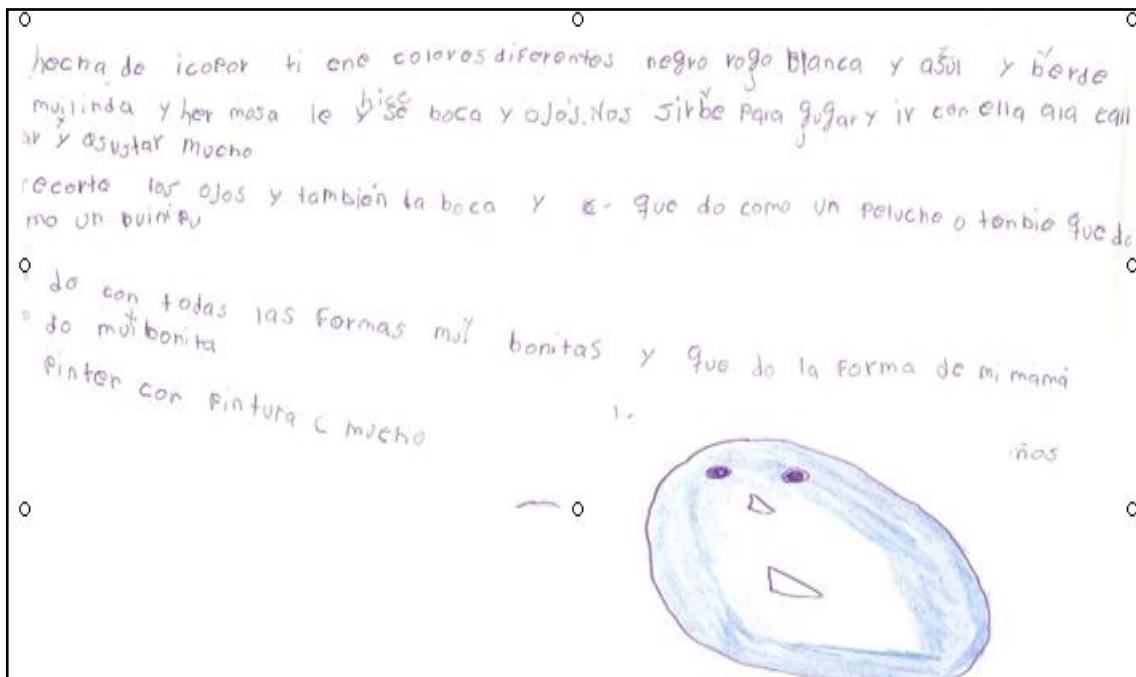 hecha de icopor ti ene colores diferentes negro rogo blanca y asul y berde
muilinda y her mosa le hise boca y ojos. Nos sirbe para gugar y ir con ella ala call
ar y asustar mucho
recorte los ojos y también la boca y que do como un peluche o tonbie que do
mo un
do con todas las formas mui bonitas y que do la forma de mi mamá
do mui bonita
pinter con pintura mucho
ños